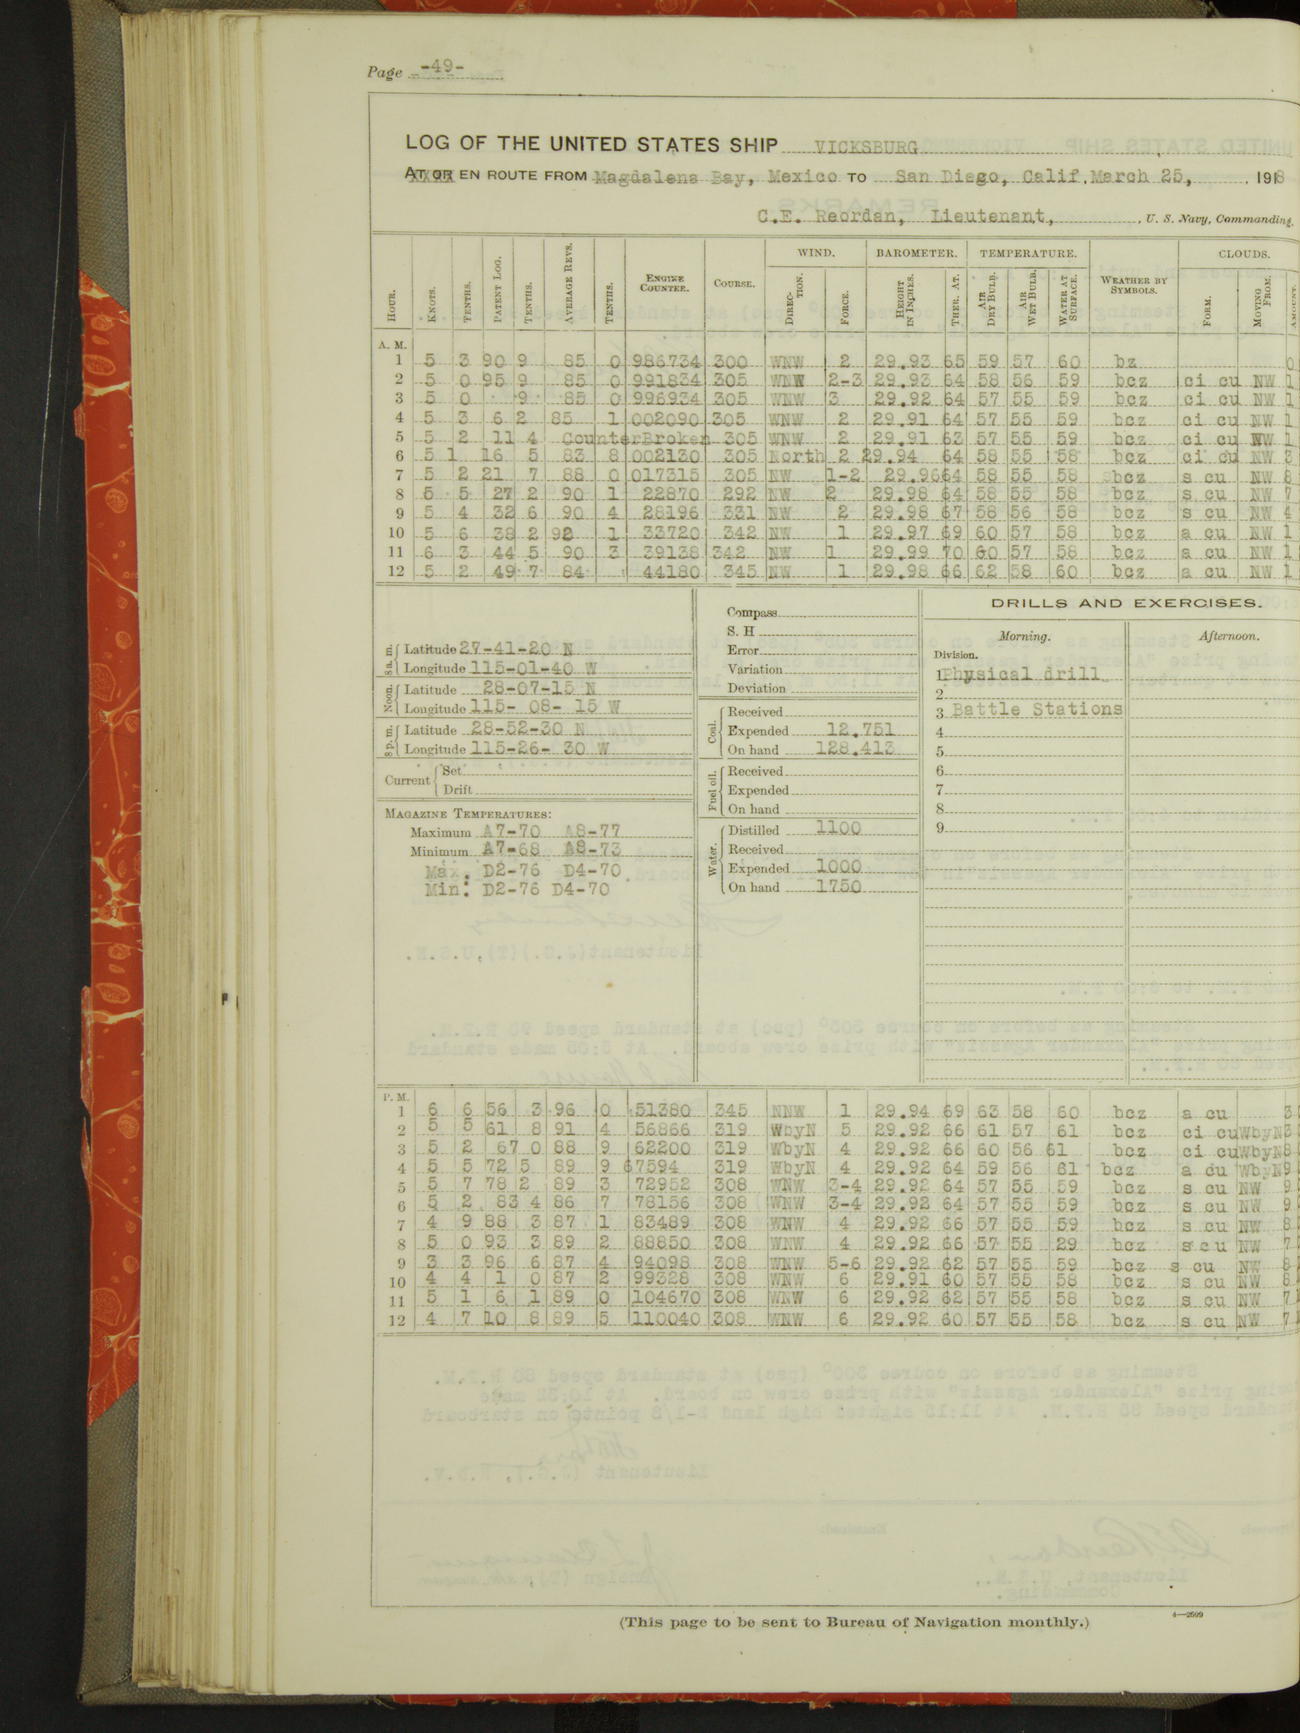 Page -49-
LOG OF THE UNITED STATES SHIP VICKSBURG
AT OR EN ROUTE FROM Magdalena Bay, Mexico TO San Diego, Calif. March 25, , 1918
C.E. Reordan, Lieutenant, , U. S. Navy, Commanding.
HOUR. KNOTS. TENTHS. PATENT LOG. TENTHS. AVERAGE REVS. TENTHS. ENGINE COUNTER. COURSE. WIND. BAROMETER. TEMPERATURE. WEATHER BY SYMBOLS. CLOUDS.
DIRECTION. FORCE. HEIGHT IN INCHES. THER. AT. AIR DRY BULB. AIR WET BULB. WATER AT SURFACE. FORM. MOVING FROM. AMOUNT.
A. M.
1 5 3 90 9 85 0 986734 300 WNW 2 29.93 65 59 57 60 bz 0
2 5 0 95 9 85 0 991834 305 WNW 2-3 29.93 64 58 56 59 bcz ci cu NW 1
3 5 0 9 85 0 996934 305 WNW 3 29.92 64 57 55 59 bcz ci cu NW 1
4 5 3 6 2 85 1 002090 305 WNW 2 29.91 64 57 55 59 bcz ci cu NW 1
5 5 2 11 4 CounterBroken 305 WNW 2 29.91 63 57 55 59 bcz ci cu NW 1
6 5 1 16 5 83 8 002130 305 North 2 29.94 64 58 55 58 bcz ci cu NW 3
7 5 2 21 7 88 0 017315 305 NW 1-2 29.96 64 58 55 58 bcz s cu NW 8
8 5 5 27 2 90 1 22870 292 NW 2 29.98 64 58 55 58 bcz s cu NW 7
9 5 4 32 6 90 4 28196 331 NW 2 29.98 67 58 56 58 bcz s cu NW 4
10 5 6 38 2 92 1 33720 342 NW 1 29.97 69 60 57 58 bcz a cu NW 1
11 6 3 44 5 90 3 39138 342 NW 1 29.99 70 60 57 58 bcz a cu NW 1
12 5 2 49 7 84 44180 345 NW 1 29.98 66 62 58 60 bcz a cu NW 1
8 a. m. Latitude 27-41-20 N
Longitude 115-01-40 W
Noon. Latitude 28-07-15 N
Longitude 115- 08- 15 W
8 p. m. Latitude 28-52-30 N
Longitude 115-26- 30 W
Current Set
Drift
MAGAZINE TEMPERATURES:
Maximum A7-70 A8-77
Minimum A7-68 A8-73
Max. D2-76 D4-70
Min: D2-76 D4-70
Compass
S. H
Error
Variation
Deviation
Coal. Received
Expended 12.751
On hand 128.413
Fuel oil. Received
Expended
On hand
Water. Distilled 1100
Received
Expended 1000
On hand 1750
DRILLS AND EXERCISES.
Morning. Afternoon.
Division.
1 Physical drill
2
3 Battle Stations
4
5
6
7
8
9
P. M.
1 6 6 56 3 96 0 51380 345 NNW 1 29.94 69 63 58 60 bcz a cu 3
2 5 5 61 8 91 4 56866 319 WbyN 5 29.92 66 61 57 61 bcz ci cu WbyN 3
3 5 2 67 0 88 9 62200 319 WbyN 4 29.92 66 60 56 61 bcz ci cu WbyN 8
4 5 5 72 5 89 9 67594 319 WbyN 4 29.92 64 59 56 61 bcz a cu WbyN 9
5 5 7 78 2 89 3 72952 308 WNW 3-4 29.92 64 57 55 59 bcz s cu NW 9
6 5 2 83 4 86 7 78156 308 WNW 3-4 29.92 64 57 55 59 bcz s cu NW 9
7 4 9 88 3 87 1 83489 308 WNW 4 29.92 66 57 55 59 bcz s cu NW 8
8 5 0 93 3 89 2 88850 308 WNW 4 29.92 66 57 55 29 bcz s cu NW 7
9 3 3 96 6 87 4 94098 308 WNW 5-6 29.92 62 57 55 59 bcz s cu NW 8
10 4 4 1 0 87 2 99328 308 WNW 6 29.91 60 57 55 58 bcz s cu NW 8
11 5 1 6 1 89 0 104670 308 WNW 6 29.92 62 57 55 58 bcz s cu NW 7
12 4 7 10 8 89 5 110040 308 WNW 6 29.92 60 57 55 58 bcz s cu NW 7
(This page to be sent to Bureau of Navigation monthly.)
4—2599